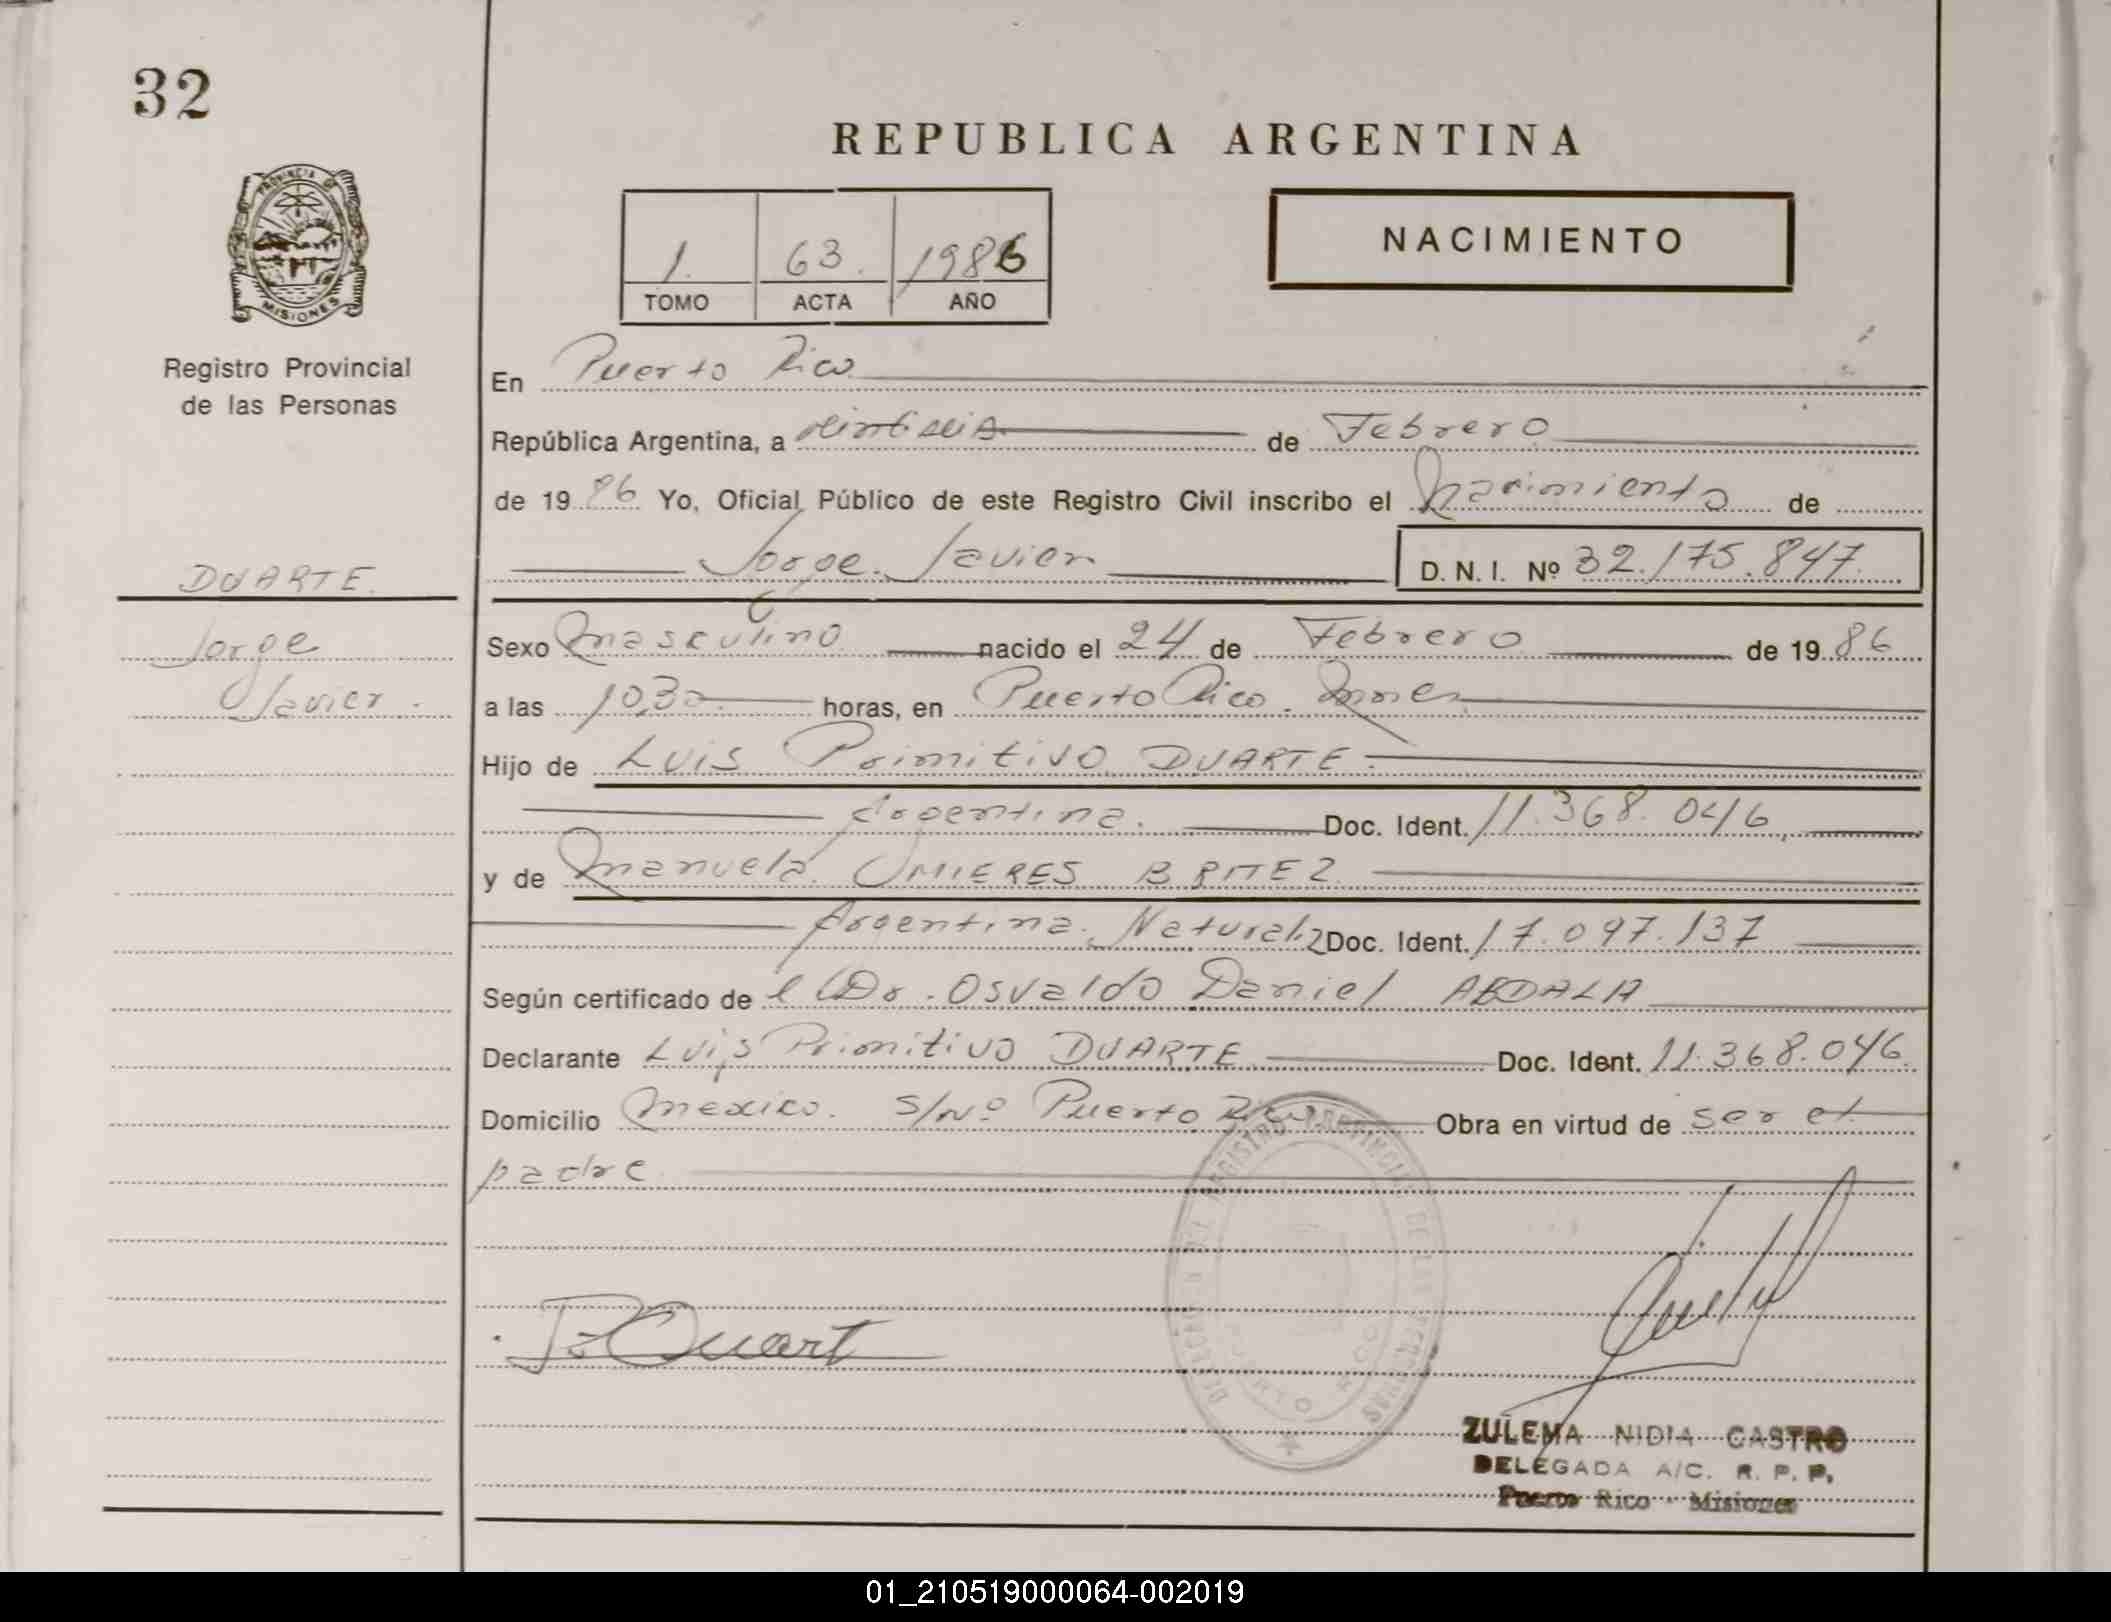 32
PROVINCIA DE
MISIONES
Registro Provincial
de las Personas
DUARTE
Jorge
Javier
REPUBLICA ARGENTINA
1 63 1986
TOMO ACTA AÑO
NACIMIENTO
En Puerto Rico
República Argentina, a veintiseis de Febrero
de 1986 Yo, Oficial Público de este Registro Civil inscribo el Nacimiento de
Jorge Javier D. N. I. Nº 32.175.847
Sexo Masculino nacido el 24 de Febrero de 1986
a las 10,30 horas, en Puerto Rico. Mnes
Hijo de Luis Primitivo DUARTE
Argentina. Doc. Ident. 11.368.046
y de Manuela OMIERES BRITEZ
Argentina Naturaliz Doc. Ident. 17.097.137
Según certificado de el Dr. Osvaldo Daniel ABDALA
Declarante Luis Primitivo DUARTE Doc. Ident. 11.368.046
Domicilio Mexico. S/Nº Puerto Rico Obra en virtud de ser el
padre
DELEGACION DEL REGISTRO PROVINCIAL DE LAS PERSONAS
PUERTO RICO
Duart
ZULEMA NIDIA CASTRO
DELEGADA A/C. R. P. P.
Puerto Rico - Misiones
01_210519000064-002019